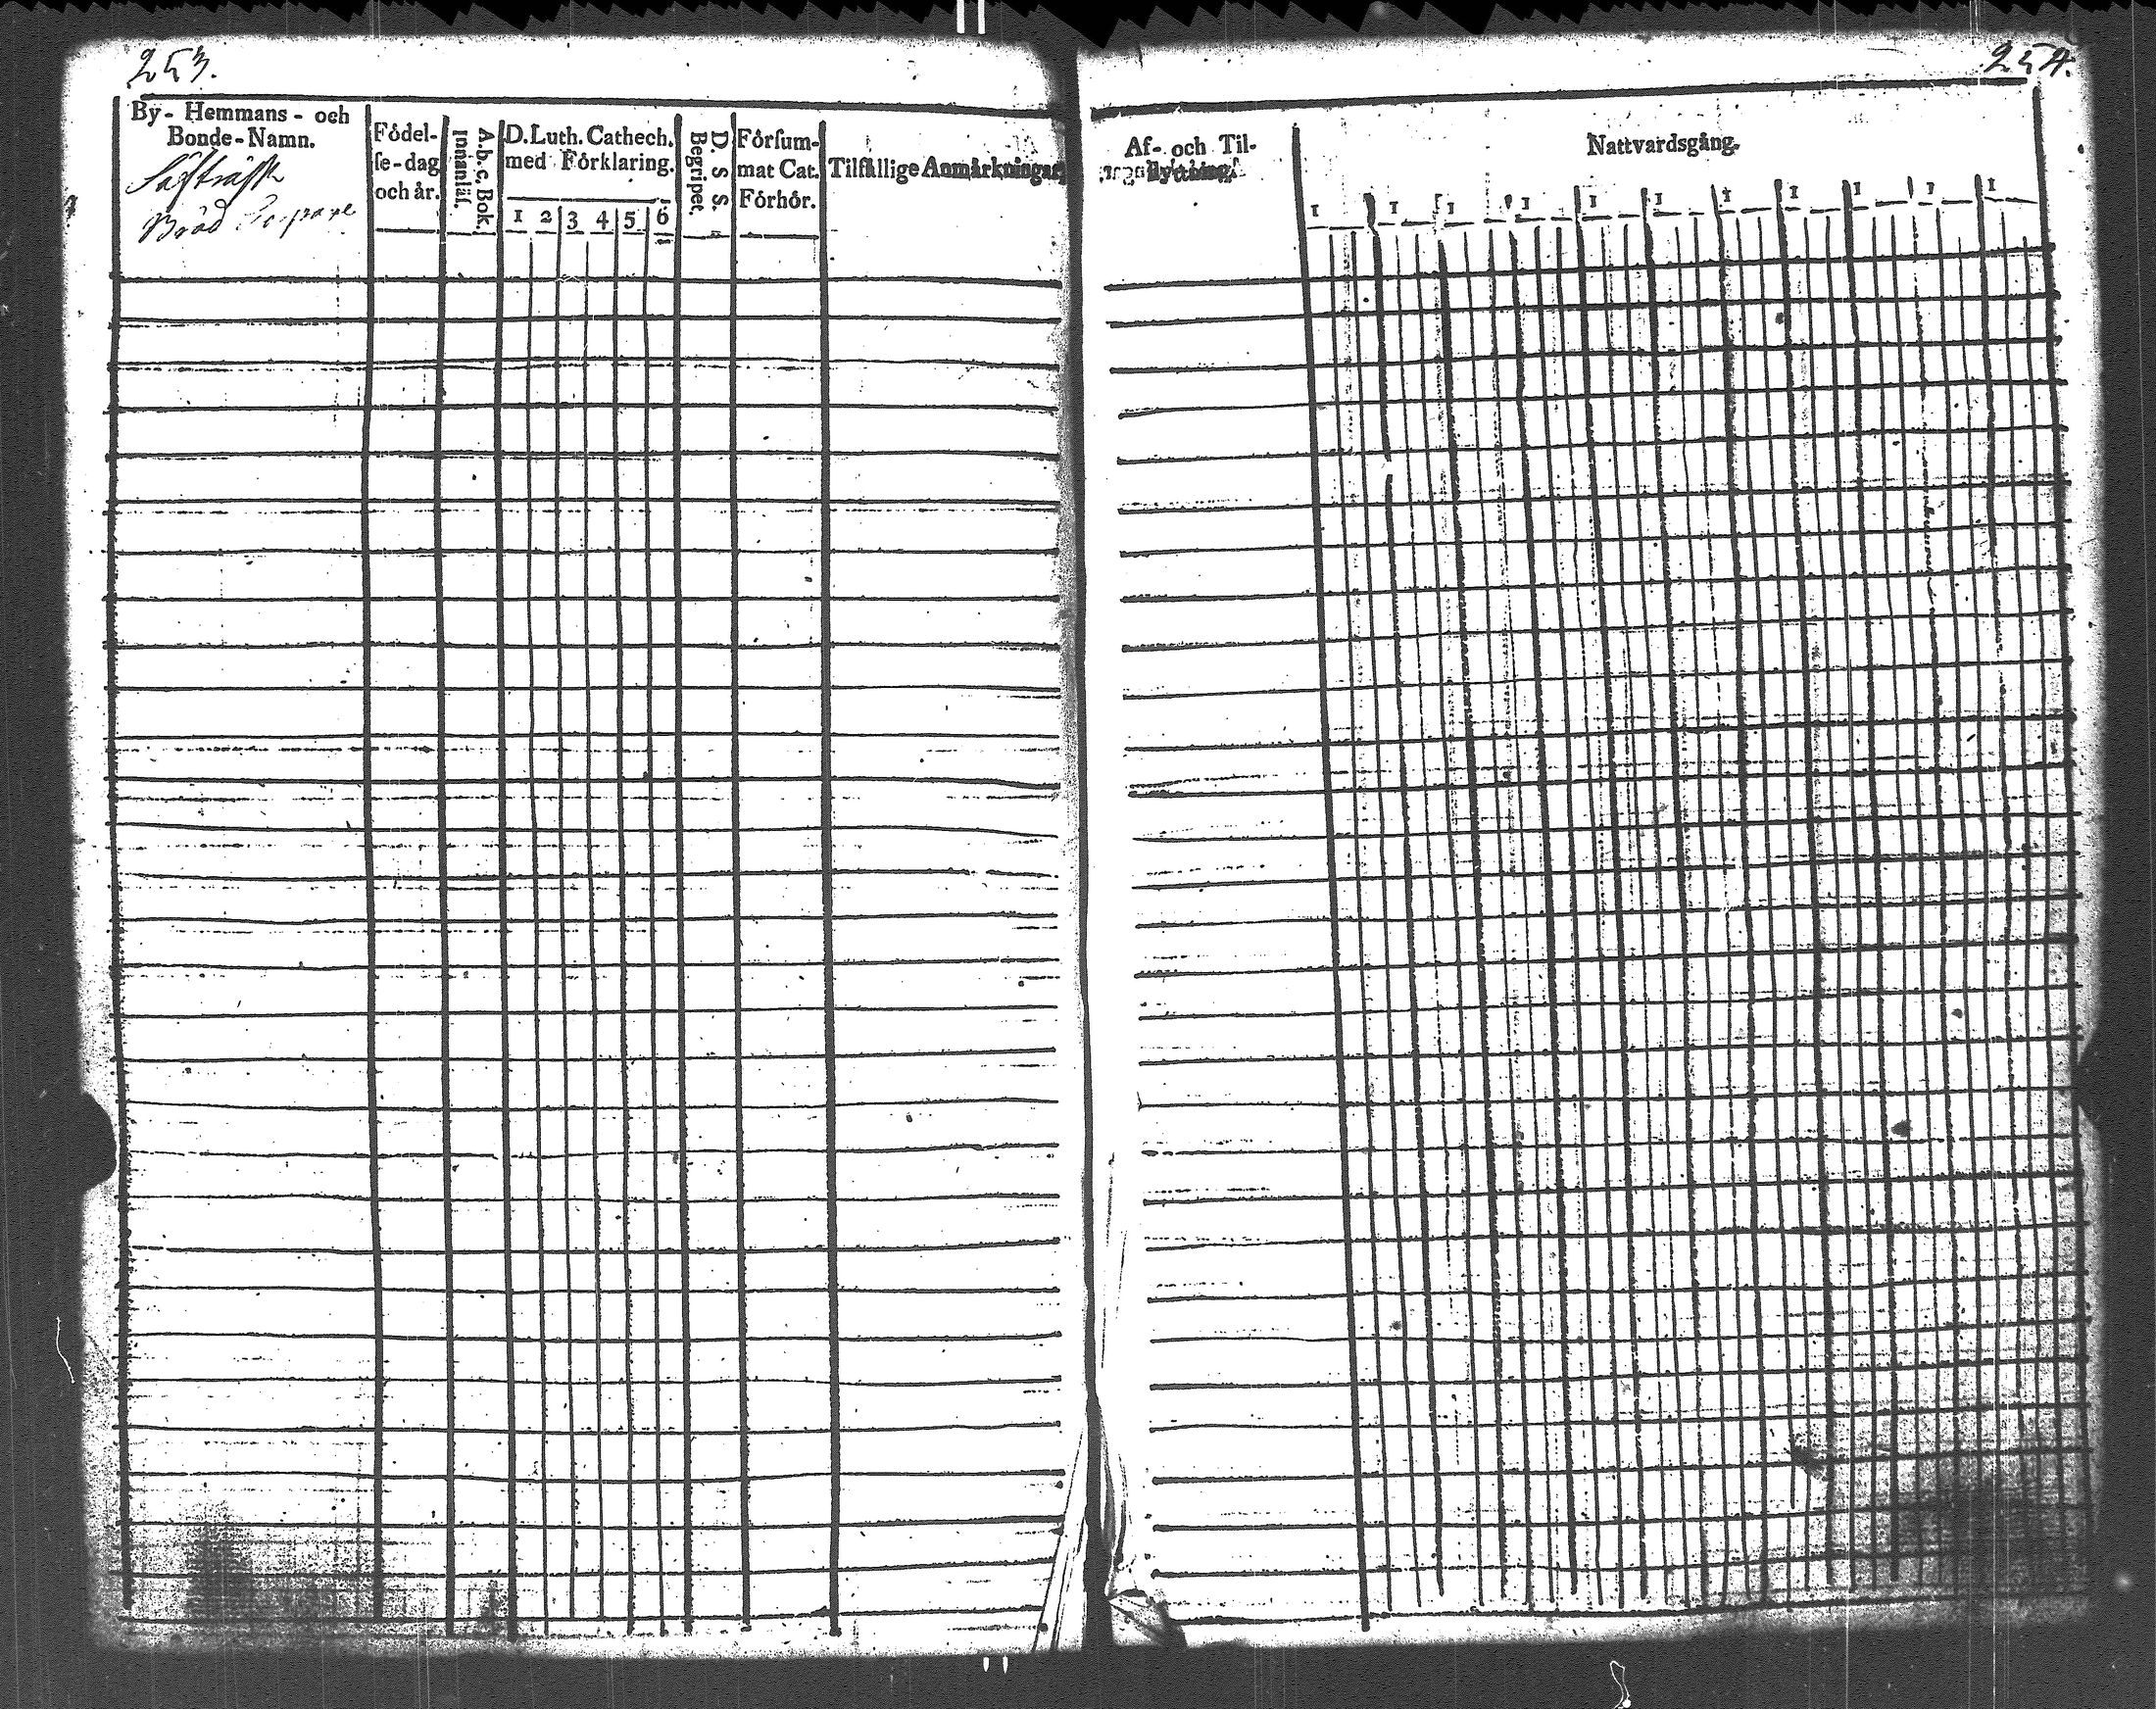 253.
By- Hemmans- och
Bonde-Namn.
Fôdel-
ſe-dag
och år.
A.b.c. Bok.
Innanläſ.
D. Luth. Cathech.
med Fôrklaring.
1 2 3 4 5 6
D. S S.
Begripet.
Fôrſum-
mat Cat.
Fôrhôr.
Tilfällige Anmärkningar
254.
Af- och Til-
flyttning.
Nattvardsgång.
1 1 1 1 1 1 1 1 1 1 1